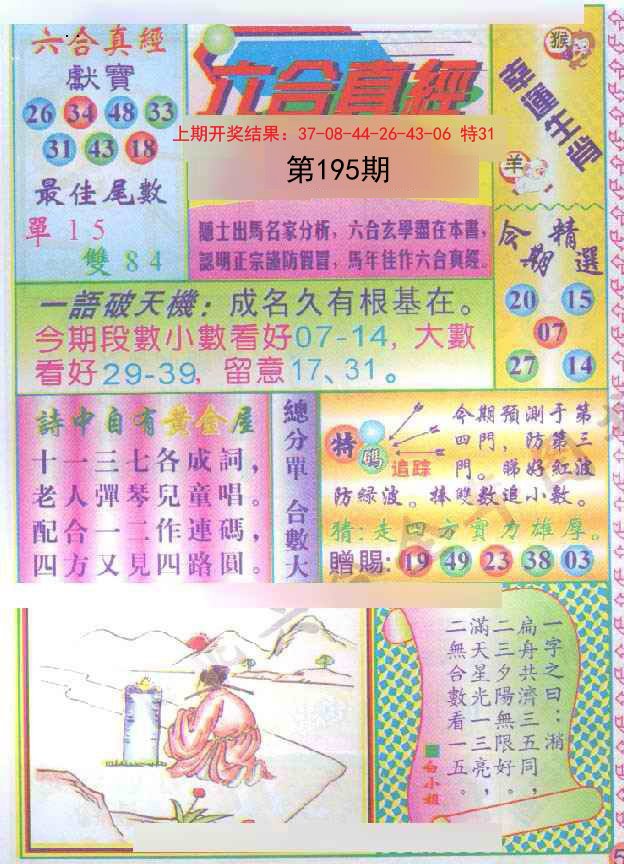 六合真經
獻寶
26 34 48 33
31 43 18
最佳尾數
單 1 5
雙 8 4
六合真經
上期开奖结果：37-08-44-26-43-06 特31
第195期
隱士出馬名家分析，六合玄學盡在本書，
認明正宗謹防假冒，馬年佳作六合真經。
猴
羊
今期精選
20 15
07
27 14
一語破天機：成名久有根基在。
今期段數小數看好07-14，大數
看好29-39，留意17、31。
詩中自有黃金屋
十一三七各成詞，
老人彈琴兒童唱。
配合一二作連碼，
四方又見四路圓。
總分單 合數大
特碼
追踪
今期預測于第
四門，防第三
門。睇好紅波
防綠波。捧雙數追小數。
猜:走四方實力雄厚。
贈賜: 19 49 23 38 03
一字之曰：湘
扁舟共濟三五同，
二三夕陽無限好，
滿天星光一三亮。
二無合數看一五。
白小姐
5